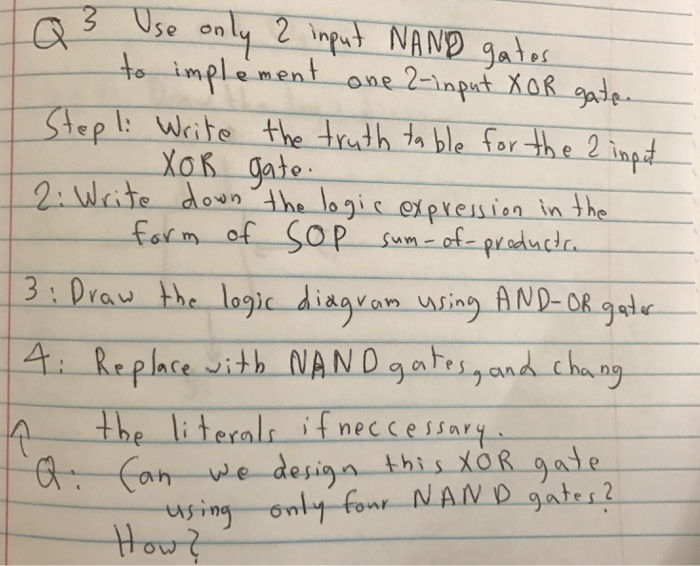 Q 3 Use only 2 input NAND gates
to implement one 2-input XOR gate.
Step 1: Write the truth table for the 2 input
XOR gate.
2: Write down the logic expression in the
form of SOP sum-of-products.
3: Draw the logic diagram using AND-OR gates
4: Replace with NAND gates, and chang
↑ the literals if neccessary.
Q: Can we design this XOR gate
using only four NAND gates?
How?